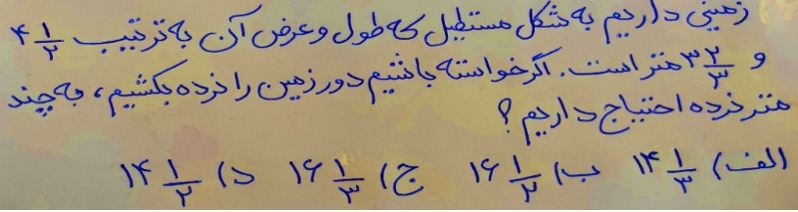 زمینی داریم به شکل مستطیل که طول و عرض آن به ترتیب ۴ ۱/۲
و ۳ ۲/۳ متر است. اگر خواسته باشیم دور زمین را نرده بکشیم، به چند
متر نرده احتیاج داریم؟
الف) ۱۴ ۱/۳ ب) ۱۶ ۱/۲ ج) ۱۶ ۱/۳ د) ۱۴ ۱/۲